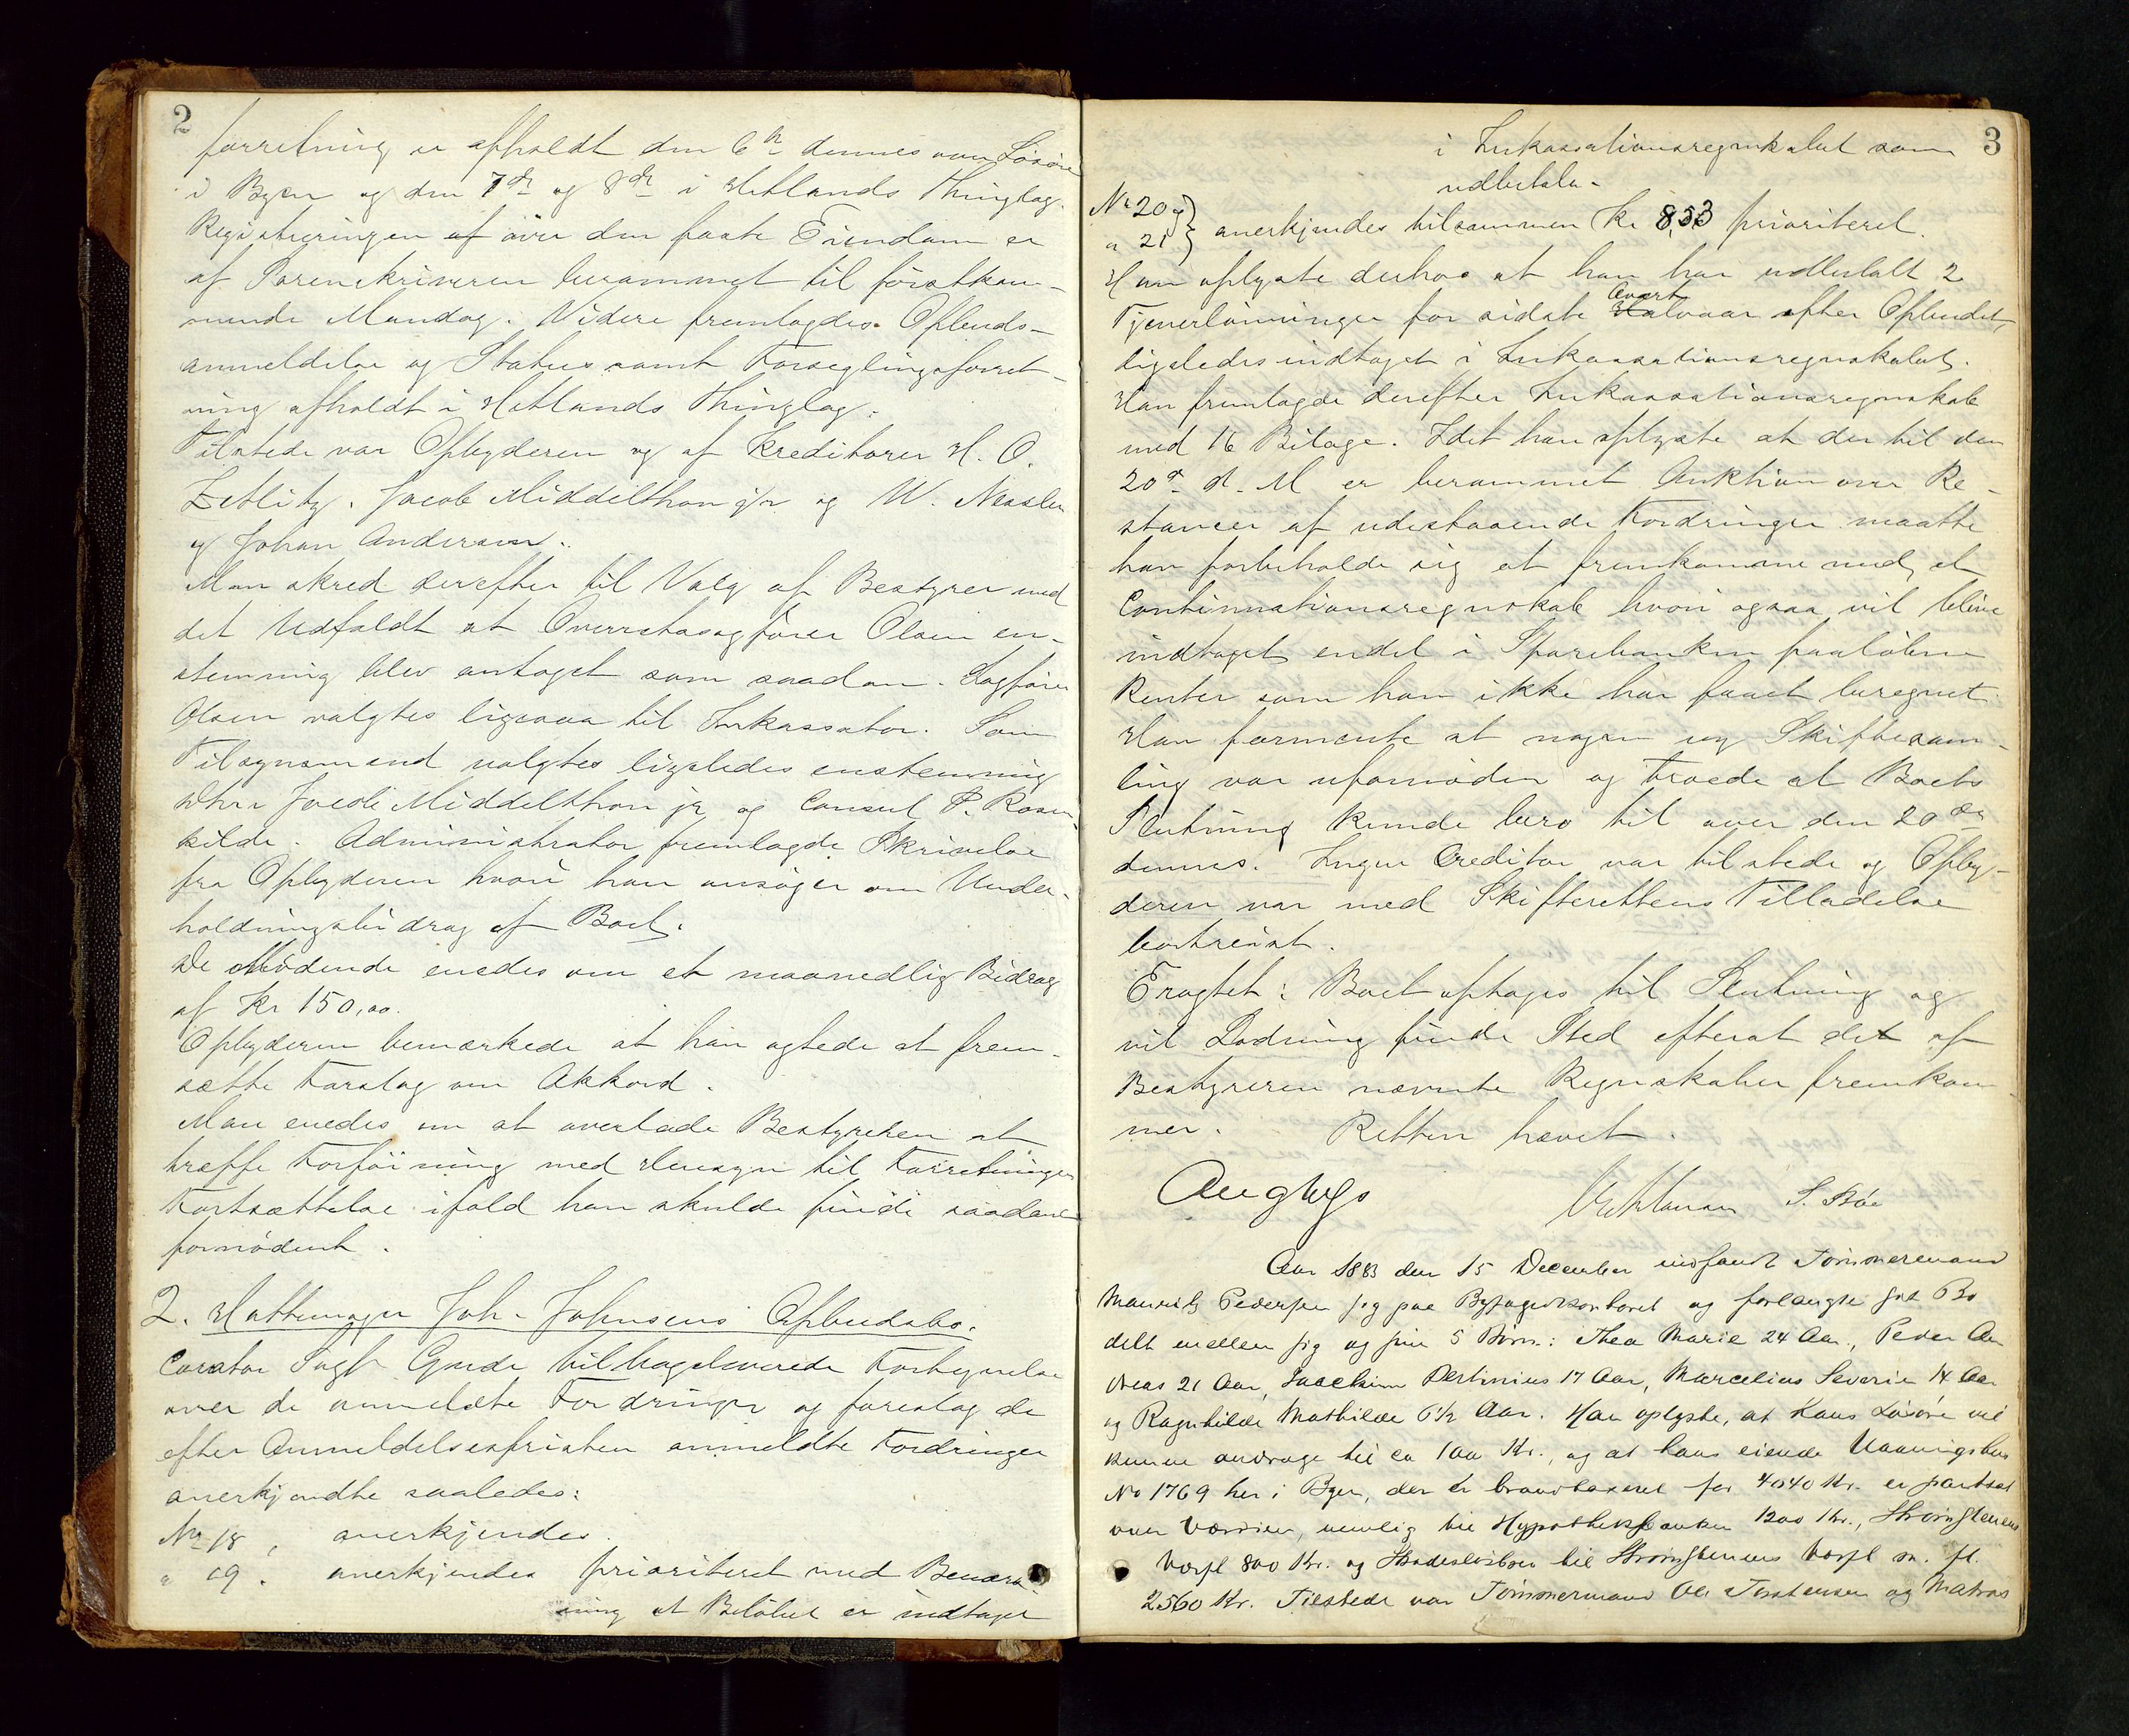 2
forretning er afholdt den 6te dennes over Løsøre
i Byen og den 7de og 8de i Hetlands Thinglag.
Registreringen af över den faste Eiendom er
af Sorenskriveren berammet til förstkom-
mende Mandag. Videre fremlagdes Opbuds-
anmeldelse og Status samt Forseglingsforret-
ning afholdt i Hetlands Thinglag.
Tilstede var Opbyderen og af Kreditorer H. O.
Zetlitz, Jacob Middelthon jr og W.
og Johan Andersen.
Man skred derefter til Valg af Bestyrer med
det Udfaldt at Overretssagfører Olsen en-
stemmig blev antaget som saadan. Sagfører
Olsen valgtes ligesaa til Inkassator. Som
Tilsynsmænd valgtes ligeledes enstemmig
Dhrr Jacob Middelthon jr og Consul P. Rosen-
kilde. Administrator fremlagde Skrivelse
fra Opbyderen hvori han ansøger om Under-
holdningsbidrag af Boet.
De Mödende enedes om et maanedlig Bidrag
af Kr 150,00.
Opbyderen bemærkede at han agtede at frem-
sætte Forslag om Akkord.
Man enedes om at overlade Bestyrelsen at
træffe Forföining med Hensyn til Forretningens
Fortsættelse ifald han skulde finde saadant
fornödent.
2. Hattemager Joh. Johnsens Opbudsbo.
Curator Sagf. Gude tilbageleverede Fortegnelse
over de anmeldte Fordringer og foreslog de
efter Anmeldelsesfristen anmeldte Fordringer
anerkjendte saaledes:
No 18, anerkjendes.
" 19. anerkjendes prioriteret med Bemærk-
ning at Belöbet er indtaget
3
i Inkassationsregnskabet som
udbetalt.
No 20 og } anerkjendes tilsammen Kr 8,53 prioriteret.
" 21 }
Han oplyste derhos at han har udbetalt 2
Tjenerlönninger for sidste Halvaar Qvart efter Opbudet,
ligeledes indtaget i Inkassationsregnskabet.
Han fremlagde derefter Inkassationsregnskab
med 16 Bilage. Idet han oplyste at der til den
20de d. M er berammet Auktion over Re-
stancer af udestaaende Fordringer maatte
han forbeholde sig at fremkomme med et
Continuationsregnskab hvori ogsaa vil blive
indtaget endel i Sparebanken paalöbne
Renter som han ikke har faaet beregnet.
Han formente at nogen ny Skiftesam-
ling var ufornöden og troede at Boets
Slutning kunde bero til over den 20de
dennes. Ingen Creditor var tilstede og Opby-
deren var med Skifterettens Tilladelse
bortreist.
Eragtet: Boet optages til Slutning og
vil Lodning finde Sted efterat det af
Bestyreren nævnte Regnskaber fremkom
mer. Retten hævet.
S. Böe
Aar 1883 den 15 December indfandt Tømmermand
Maurits Pedersen sig paa Byfogedkontoret og forlangte sit Bo
delt mellem sig og sine 5 Børn: Thea Marie 24 Aar, Peder An
dreas 21 Aar, Joachim Martinius 17 Aar, Marcelius Severin 14 Aar
og Ragnhilde Mathilde 6½ Aar. Han oplyste, at hans Løsøre vil
kunne andrage til ca 100 Kr., og at hans eiende Vaaningshus
No 1769 her i Byen, der er brandtaxeret for 4040 Kr. er pantsat
over Værdien, nemlig til Hypothekbanken 1200 Kr., Strømstenens
Værft 800 Kr. og Skadesløsbrev til Strømstenens Værft m. fl.
2560 Kr. Tilstede var Tømmermand Ole Torstensen og Matros